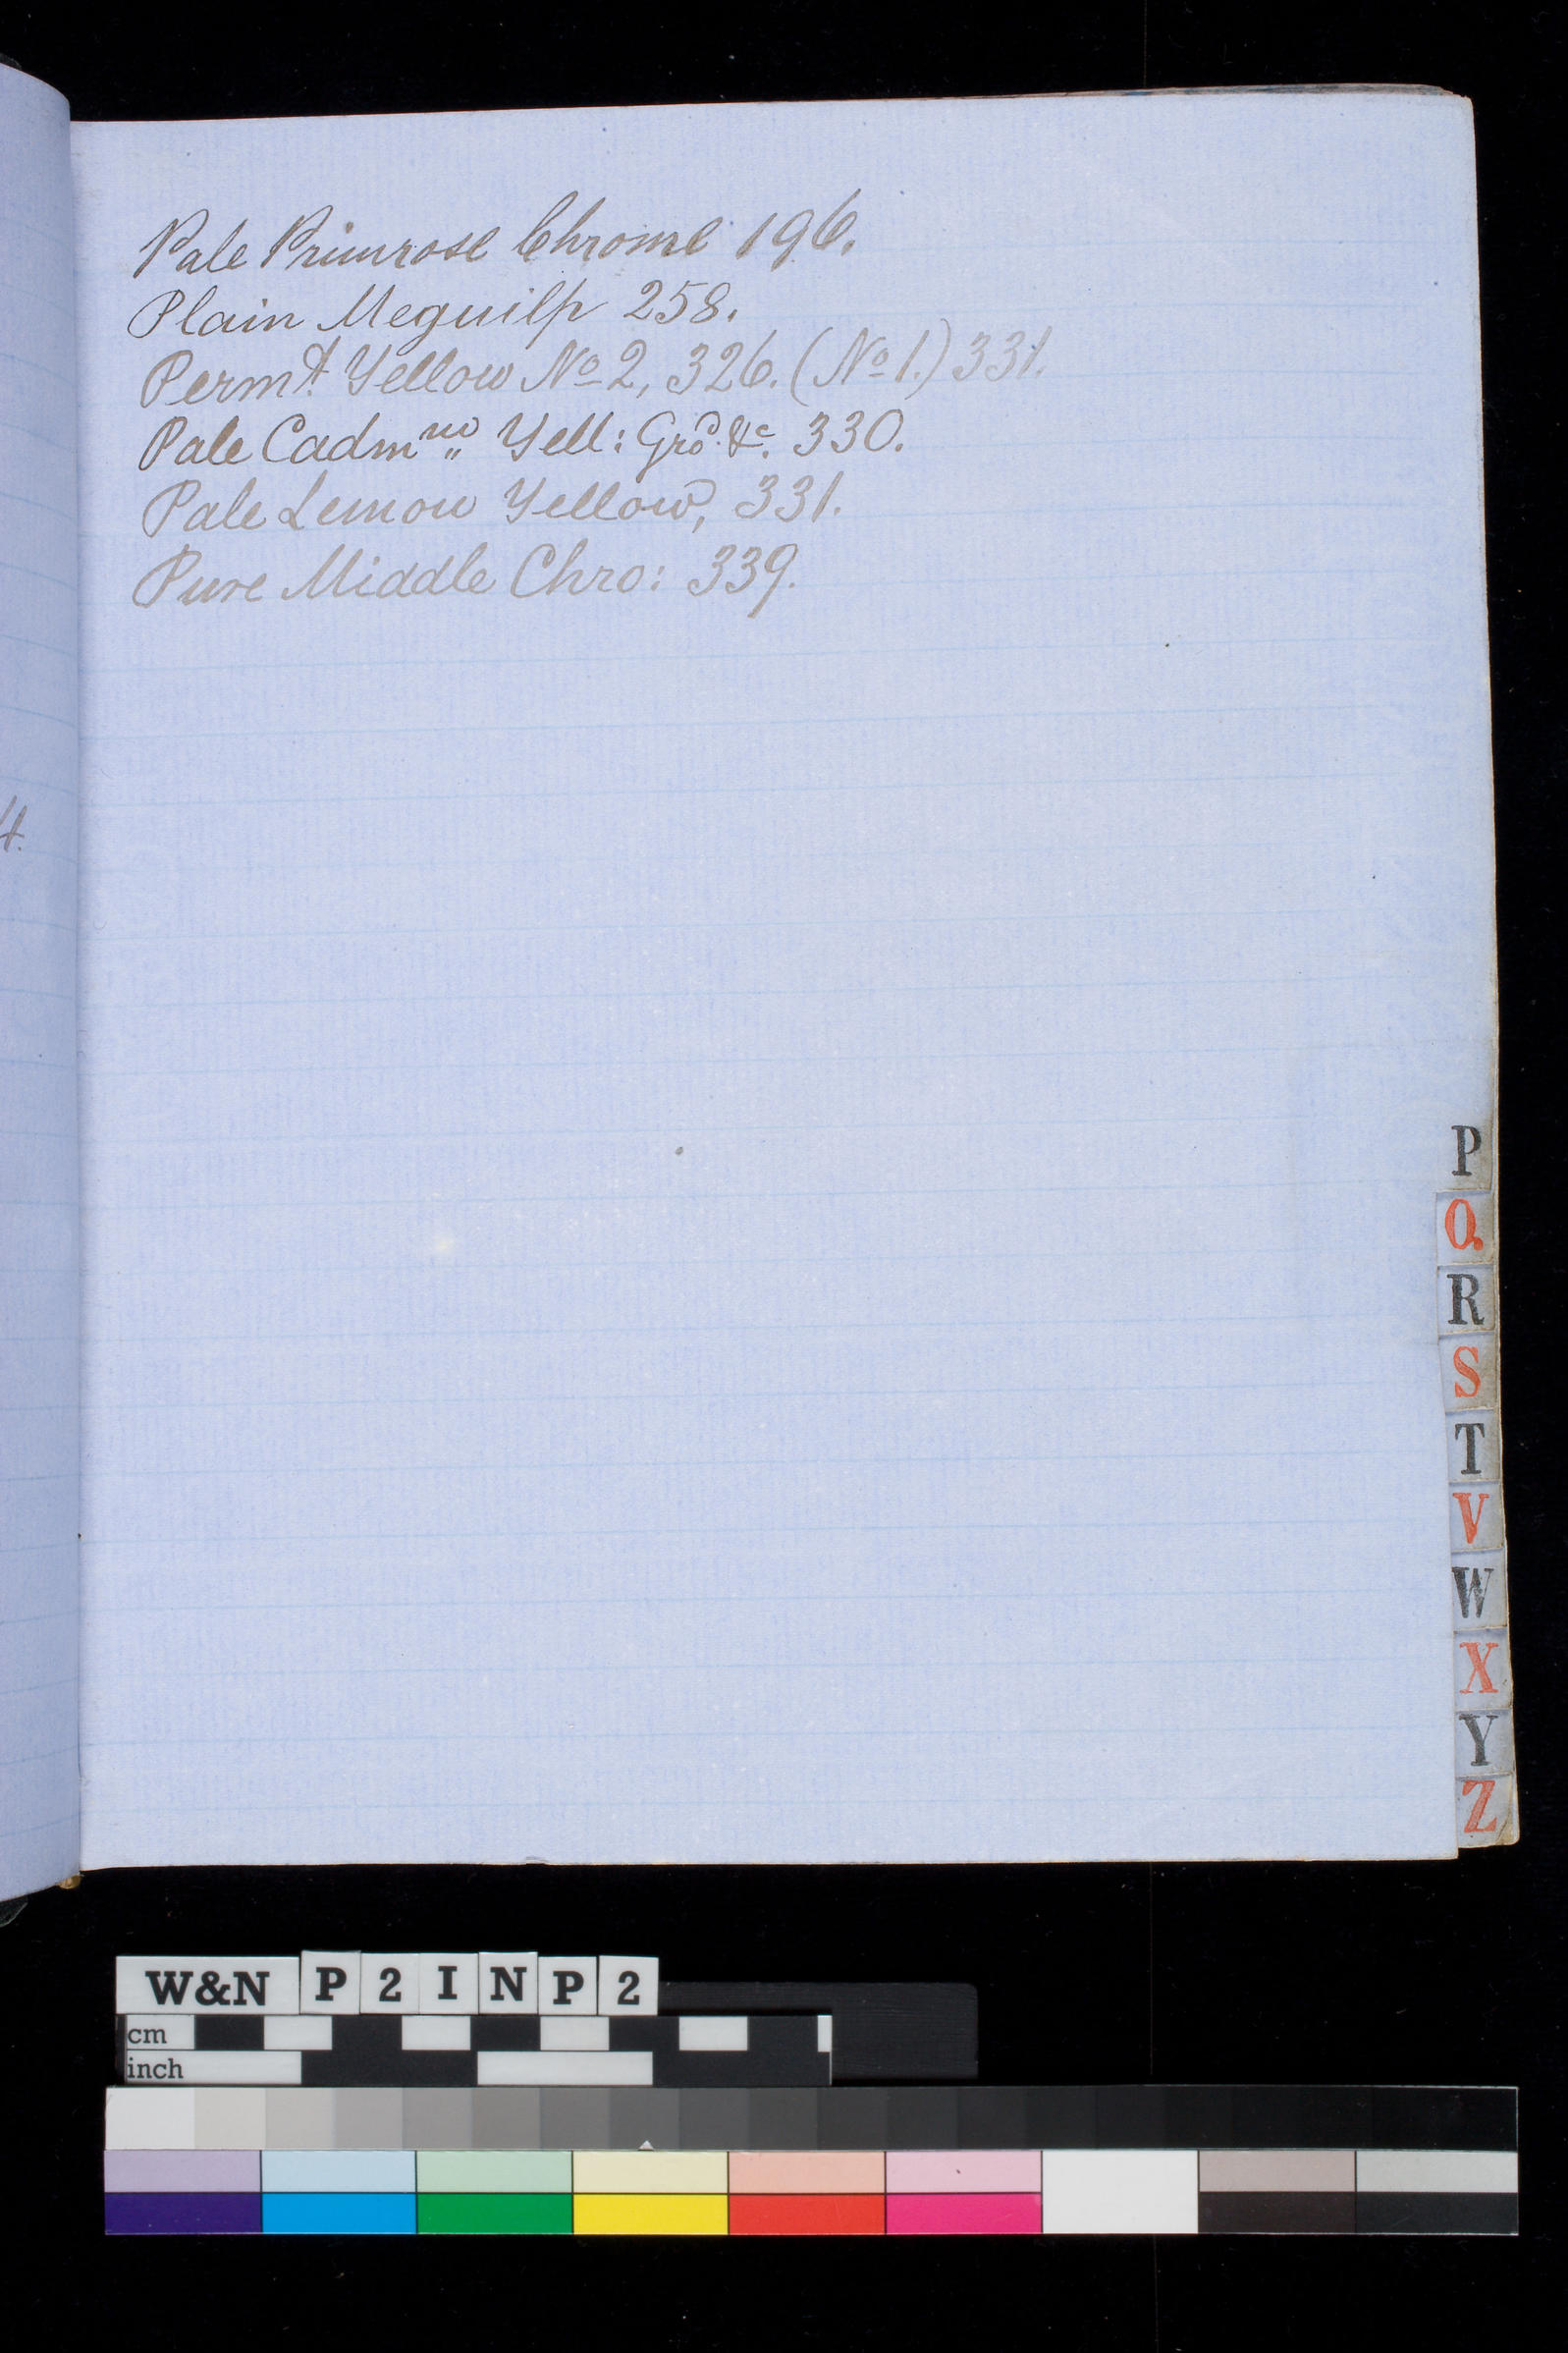 Pale Primrose Chrome 196.
Plain Meguilp 258.
Permt. Yellow No 2, 326. (No 1.) 331.
Pale Cadmm„ Yell: Grd. &c. 330.
Pale Lemon Yellow, 331.
Pure Middle Chro: 339.
4.
P
Q
R
S
T
V
W
X
Y
Z
W&N P 2 I N P 2
cm
inch